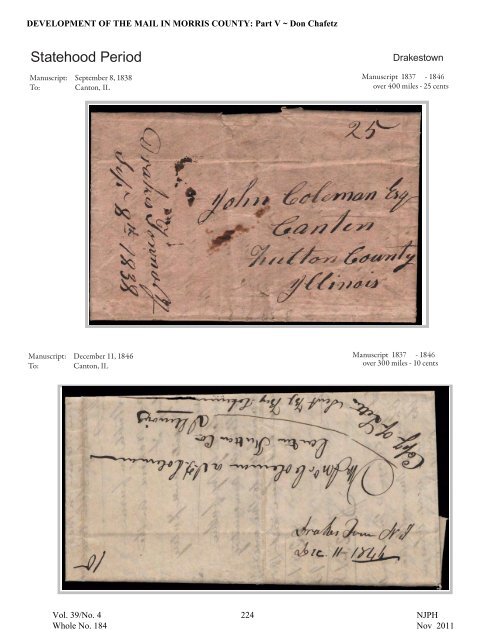 DEVELOPMENT OF THE MAIL IN MORRIS COUNTY: Part V ~ Don Chafetz
Statehood Period
Drakestown
Manuscript: September 8, 1838
To: Canton, IL
Manuscript 1837 - 1846
over 400 miles - 25 cents
25
Drakes Town N J
Sept 8th 1838
John Coleman Esq
Canton
Fulton County
Illinois
Manuscript: December 11, 1846
To: Canton, IL
Manuscript 1837 - 1846
over 300 miles - 10 cents
Copy of Letter Sent By
Illinois
Canton Fulton Co
Coleman
Drakes Town N J
Dec 11
10
Vol. 39/No. 4
Whole No. 184
224
NJPH
Nov 2011